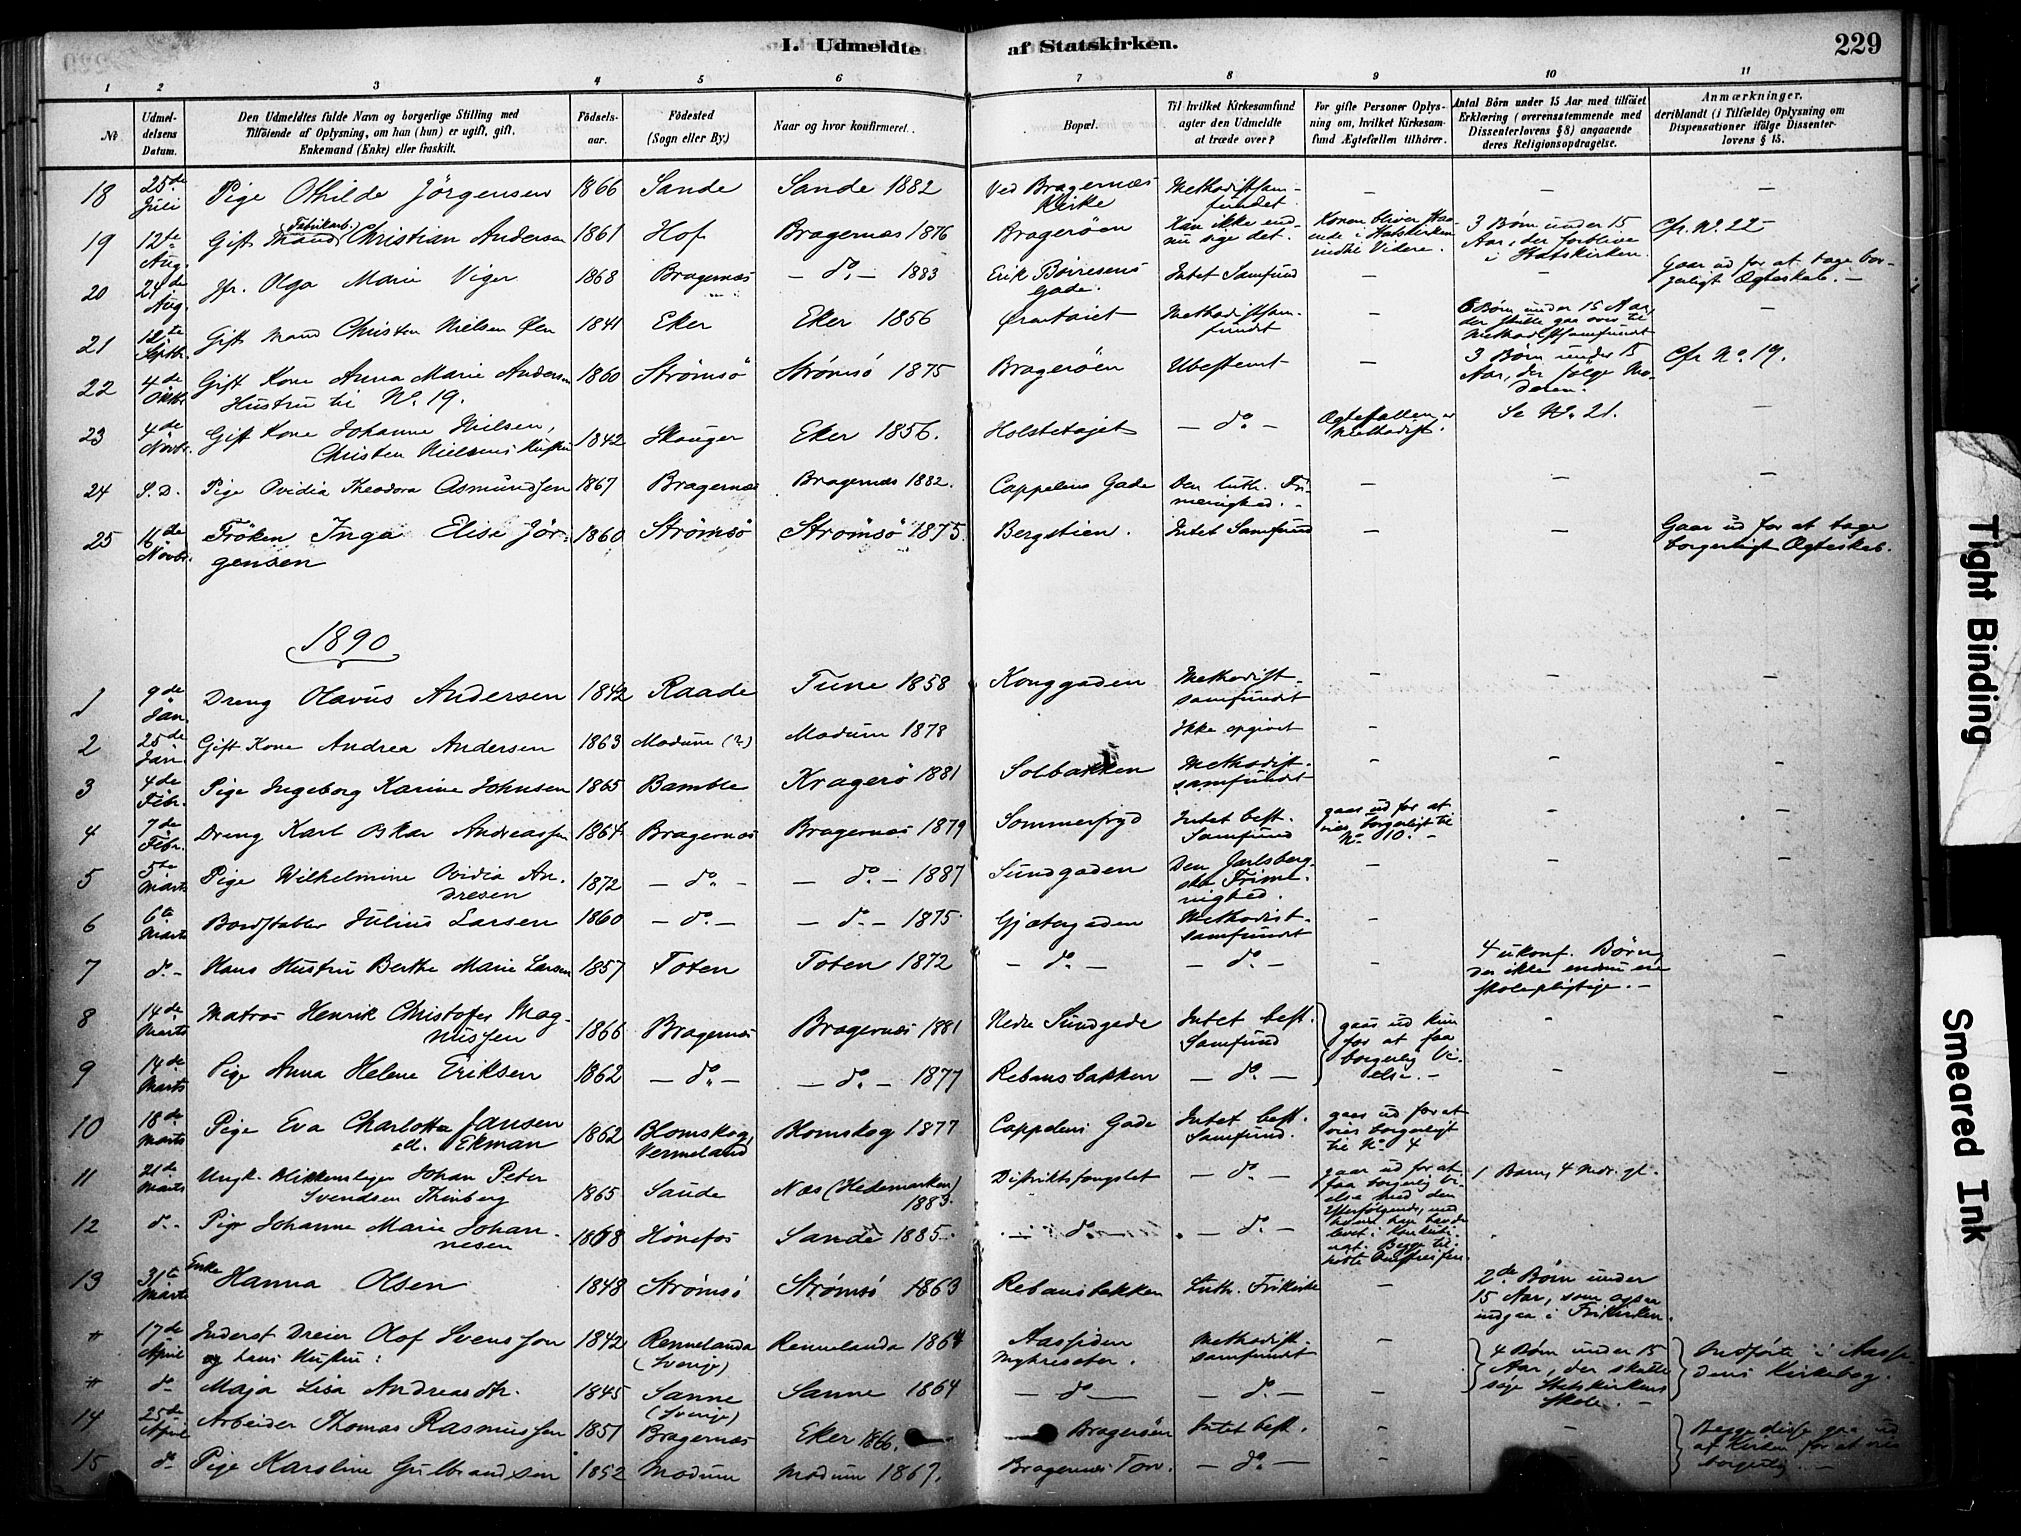 I. Udmeldte af Statskirken. 229
1 2 3 4 5 6 7 8 9 10 11
No Udmeldelsens Datum. Den Udmeldtes fulde Navn og borgerlige Stilling med Tilföiende af Oplysning, om han (hun) er ugift, gift, Enkemand (Enke) eller fraskilt. Födselsaar. Födested (Sogn eller By.) Naar og hvor konfirmeret. Bopæl. Til hvilket Kirkesamfund agter den Udmeldte at træde over? For gifte Personer Oplysning om, hvilket Kirkesamfund Ægtefællen tilhörer. Antal Börn under 15 Aar med tilföiet Erklæring (overensstemmende med Dissenterlovens § 8) angaaende deres Religionsopdragelse. Anmærkninger, deriblandt (i Tilfælde) Oplysning om Dispensationer ifölge Dissenterlovens § 15.
18 25de Juli Pige Othilde Jörgensen 1866 Sande Sande 1882 Ved Bragernæs Kirke Methodistsamfundet. — — —
19 12te Aug. Gift Mand Fabrikarb. Christian Andersen 1861 Hof Bragernæs 1876 Bragerøen Kan ikke endnu sige det. Konen bliver staaende i Statskirken indtil Videre. 3 Børn under 15 Aar, der forblive i Statskirken. Cfr. No. 22 —
20 24de Aug. Jfr. Olga Marie Viger 1868 Bragernæs — do — 1883 Erik Börresens Gade. Intet Samfund — — Gaar ud for at tage borgerligt Ægteskab. —
21 12te Septbr. Gift Mand Christen Nielsen 1841 Eker Eker 1856 Methodistsamfundet — 6 Børn under 15 Aar, der skulle gaa over til Methodistsamfundet —
22 4de Oktbr. Gift Kone Anna Marie Andersen Hustru til No. 19. 1860 Strömsö Strømsó 1875 Bragerøen Ubestemt — 3 Børn under 15 Aar, der følge Moderen. Cfr No. 19.
23 4de Novbr. Gift Kone Johanne Nielsen, Christen Nielsens Hustru 1842 Skouger Eker 1856. — do — Ægtefællen er Methodist. Se No. 21. —
24 S.D. Pige Ovidia Theodora Asmundsen 1867 Bragernæs Bragernæs 1882. Cappelens Gade Den luth. Frimenighed. — — — —
25 16de Novbr. Fröken Inga Elise Jörgensen 1860 Strömsö Strömsö 1875. Bergstien. Intet Samfund — — Gaar ud for at tage borgerligt Ægteskab.
1890
1 9de Jan. Dreng Olavus Andersen 1842 Raade Tune 1858 Konggaden Methodistsamfundet — — —
2 25de Jan. Gift Kone Andrea Andersen 1863 Modum (?) Modum 1878 Ikke opgivet —
3 4de Febr. Pige Ingeborg Karine Johnsen 1865 Bamble Kragerö 1881 Solbakken Methodistsamfundet — — —
4 7de Febr. Dreng Karl Oskar Andreassen 1864 Bragernæs Bragernæs 1879 Sommerfryd Intet best. Samfund gaar ud for at vies borgerligt til No 10. — — —
5 5te Marts Pige Wilhelmine Ovidia Andresen 1872 — do — — do — 1887 Sundgaden Den Jarlsbergske Frimenighed. — —
6 6te Marts Bordstabler Julius Larsen 1860 — do — — do — 1875 Gjetergaden Methodistsamfundet —
7 do — Hans Hustru Berthe Marie Larsen 1857 Toten Toten 1872 — do — — do — — 4 ukonf. Børn, der ikke endnu ere skolepligtige. — —
8 14de Marts Matros Henrik Christofer Magnussen 1866 Bragernæs Bragernæs 1881 Nedre Sundgade Intet best. Samfund gaar ud kun for at faa borgerlig Vielse. — — —
9 14de Marts Pige Anna Helene Eriksen 1862 — do — — do — 1877 Rebansbakken — do — — —
10 18de Marts Pige Eva Charlotta Jansen ell. Ekman 1862 Blomskog, Vermeland Blomskog 1877 Cappelens Gade Intet best. Samfund. gaar ud for at vies borgerligt til No 4
11 21de Marts Ungk. Johan Peter Svendsen 1865 Saude Næs (Hedemarken) 1883. Distriktsfængslet — do — gaar ud for at faa borgerlig Vielse med den Efterfølgende, med 1 Barn, 4 Mdr. gl.
12 do — Pige Johanne Marie Johannesen 1868 Hönefos Sande 1885. — do — — do —
13 31te Marts Enke Hanna Olsen 1848 Strömsó Strömsó 1863 Rebansbakken Luth. Frikirke — 2de Børn under 15 Aar, som ogsaa indgaa i Frikirken.
17de April Inderst Dreier Olof Svensson og hans Hustru: 1842 Rennelanda (Sverige) Rennelanda 1864 Aassiden Myhresæter. Methodistsamfundet — 4 Børn under 15 Aar, der skulle søge Statskirkens Skole. — Indførte i Aassidens Kirkebog.
do Maja Lisa Andreasdtr. 1845 Sanne (Sverige) Sanne 1864 — do — — do — —
14 25de April Arbeider Thomas Rasmussen 1851 Bragernæs Eker 1866. Bragerøen Intet best. — — Begge disse gaa ud af Kirken for at vies borgerlig. —
15 do Pige Karoline Gulbrandsen 1852 Modum Modum 1867. Bragernæs Torv. — do — — —
Tight Binding
Smeared Ink